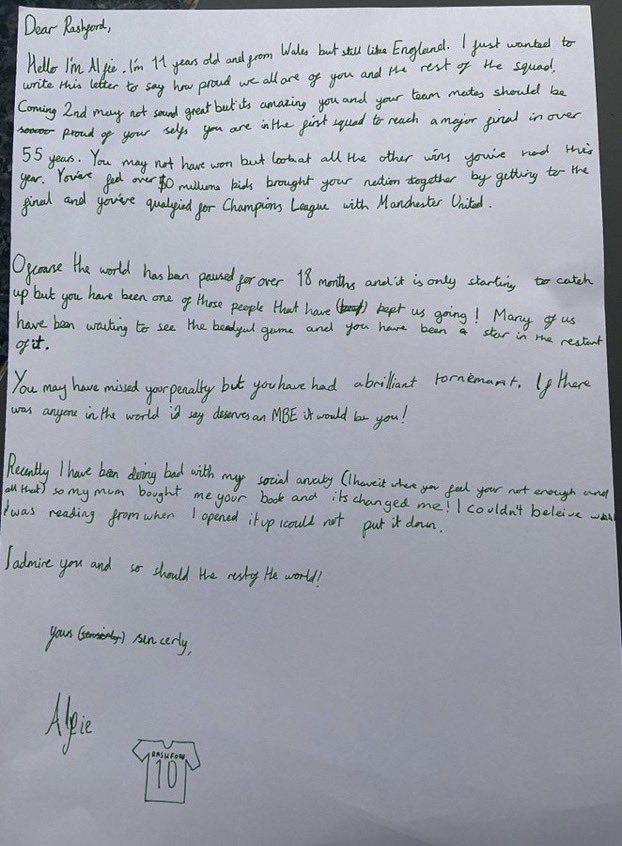 Dear Rashford,
Hello I'm Alfie. I'm 11 years old and from Wales but still like England. I just wanted to
write this letter to say how proud we all are of you and the rest of the squad.
Coming 2nd may not sound great but its amazing you and your team mates should be
proud of your selfs you are in the first squad to reach a major final in over
55 years. You may not have won but look at all the other wins you've had this
year. You've feed over $0 millions kids brought your nation together by getting to the
final and you've qualifed for Champions League with Manchester United.
Ofcourse the world has been paused for over 18 months and it is only starting to catch
up but you have been one of those people that have kept us going! Many of us
have been waiting to see the beatyful game and you have been a star in the restart
of it.
You may have missed your penalty but you have had a brilliant tornemant. If there
was anyone in the world i'd say deserves an MBE it would be you!
Recently I have been doing bad with my social anxity (I have it where you feel your not enough and
all that) so my mum bought me your book and its changed me! I couldn't beleive what
I was reading from when I opened it up I could not put it down.
I admire you and so should the rest of the world!
yours sincerly,
Alfie
RASHFORD
10